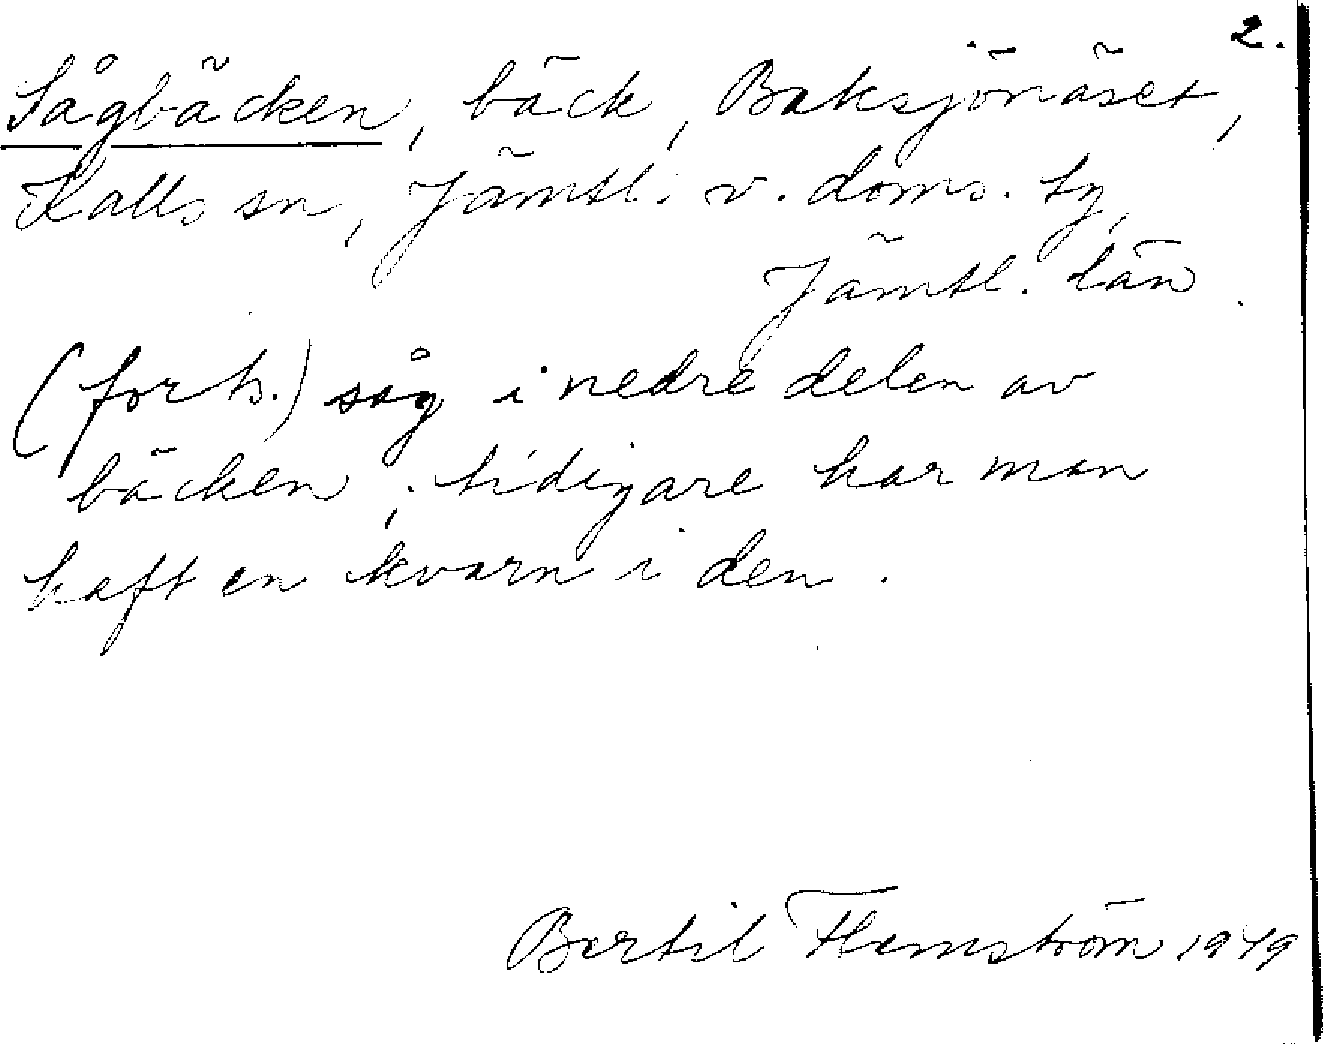 2.
Sågbäcken, bäck, Baksjönäset,
Kalls sn, Jämtl. v. doms. tg,
Jämtl. län.
(forts.) såg i nedre delen av
bäcken; tidigare har man
haft en kvarn i den.
Bertil Flemström 1979